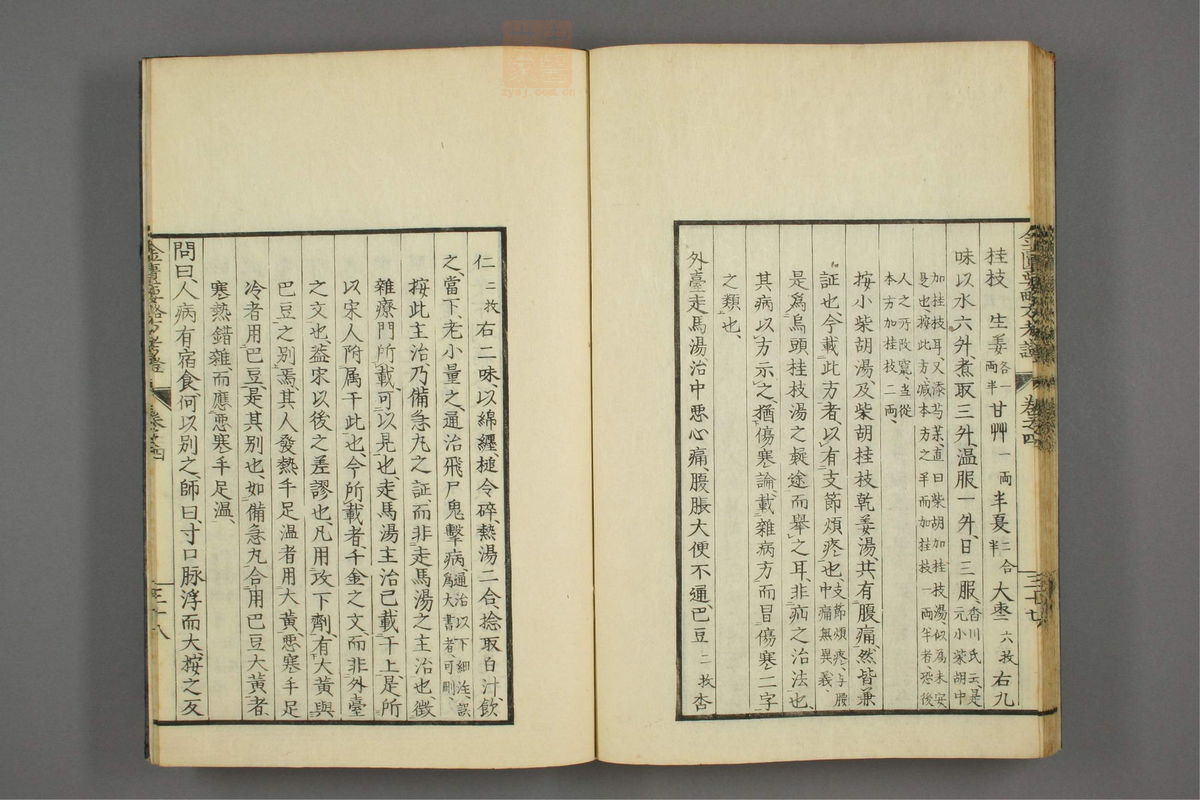 桂枝 生姜各一兩半 甘艸一兩 半夏二合半 大棗六枚 右九
味以水六升、煮取三升、温服一升、日三服、杳川氏云、是元小柴胡中
加桂枝耳、又添芍薬、直曰柴胡加桂枝湯、似為未安
是也、按此方、减本方之半而加桂枝一兩半者、恐後
人之所改竄、当從
本方加桂枝二兩、
按小柴胡湯、及柴胡桂枝乾姜湯、共有腹痛、然皆兼
証也、今載此方者、以有支節煩疼也、支節煩疼、与腰中痛無異義
是爲烏頭桂枝湯之兼途而舉之耳、非疝之治法也、
其病以方示之、猶傷寒論、載雜病方而冒傷寒二字
之類也、
外臺走馬湯、治中悪心痛、腹脹大便不通、巴豆二枚 杏
金匱要略方考證 卷之四 三十七
仁二枚 右二味、以綿纏、槌令碎、熱湯二合、捻取白汁、飲
之、當下、老小量之、通治飛尸鬼擊病、通治以下細注、誤爲大書者、可刪、
按、此主治、乃備急丸之証、而非走馬湯之主治也、徴
雜療門所載、可以見也、走馬湯主治已載于上、是所
以宋人附属于此也、今所載者、千金之文、而非外臺
之文也、蓋宋以後之差謬也、凡用攻下劑、有大黃與
巴豆之別焉、其人發熱手足温者用大黃、悪寒手足
冷者用巴豆、是其別也、如備急丸、合用巴豆大黃者、
寒熱錯雜、而應悪寒手足温、
問曰、人病有宿食、何以別之、師曰、寸口脉浮而大、按之反
金匱要略方考證 卷之四 三十八